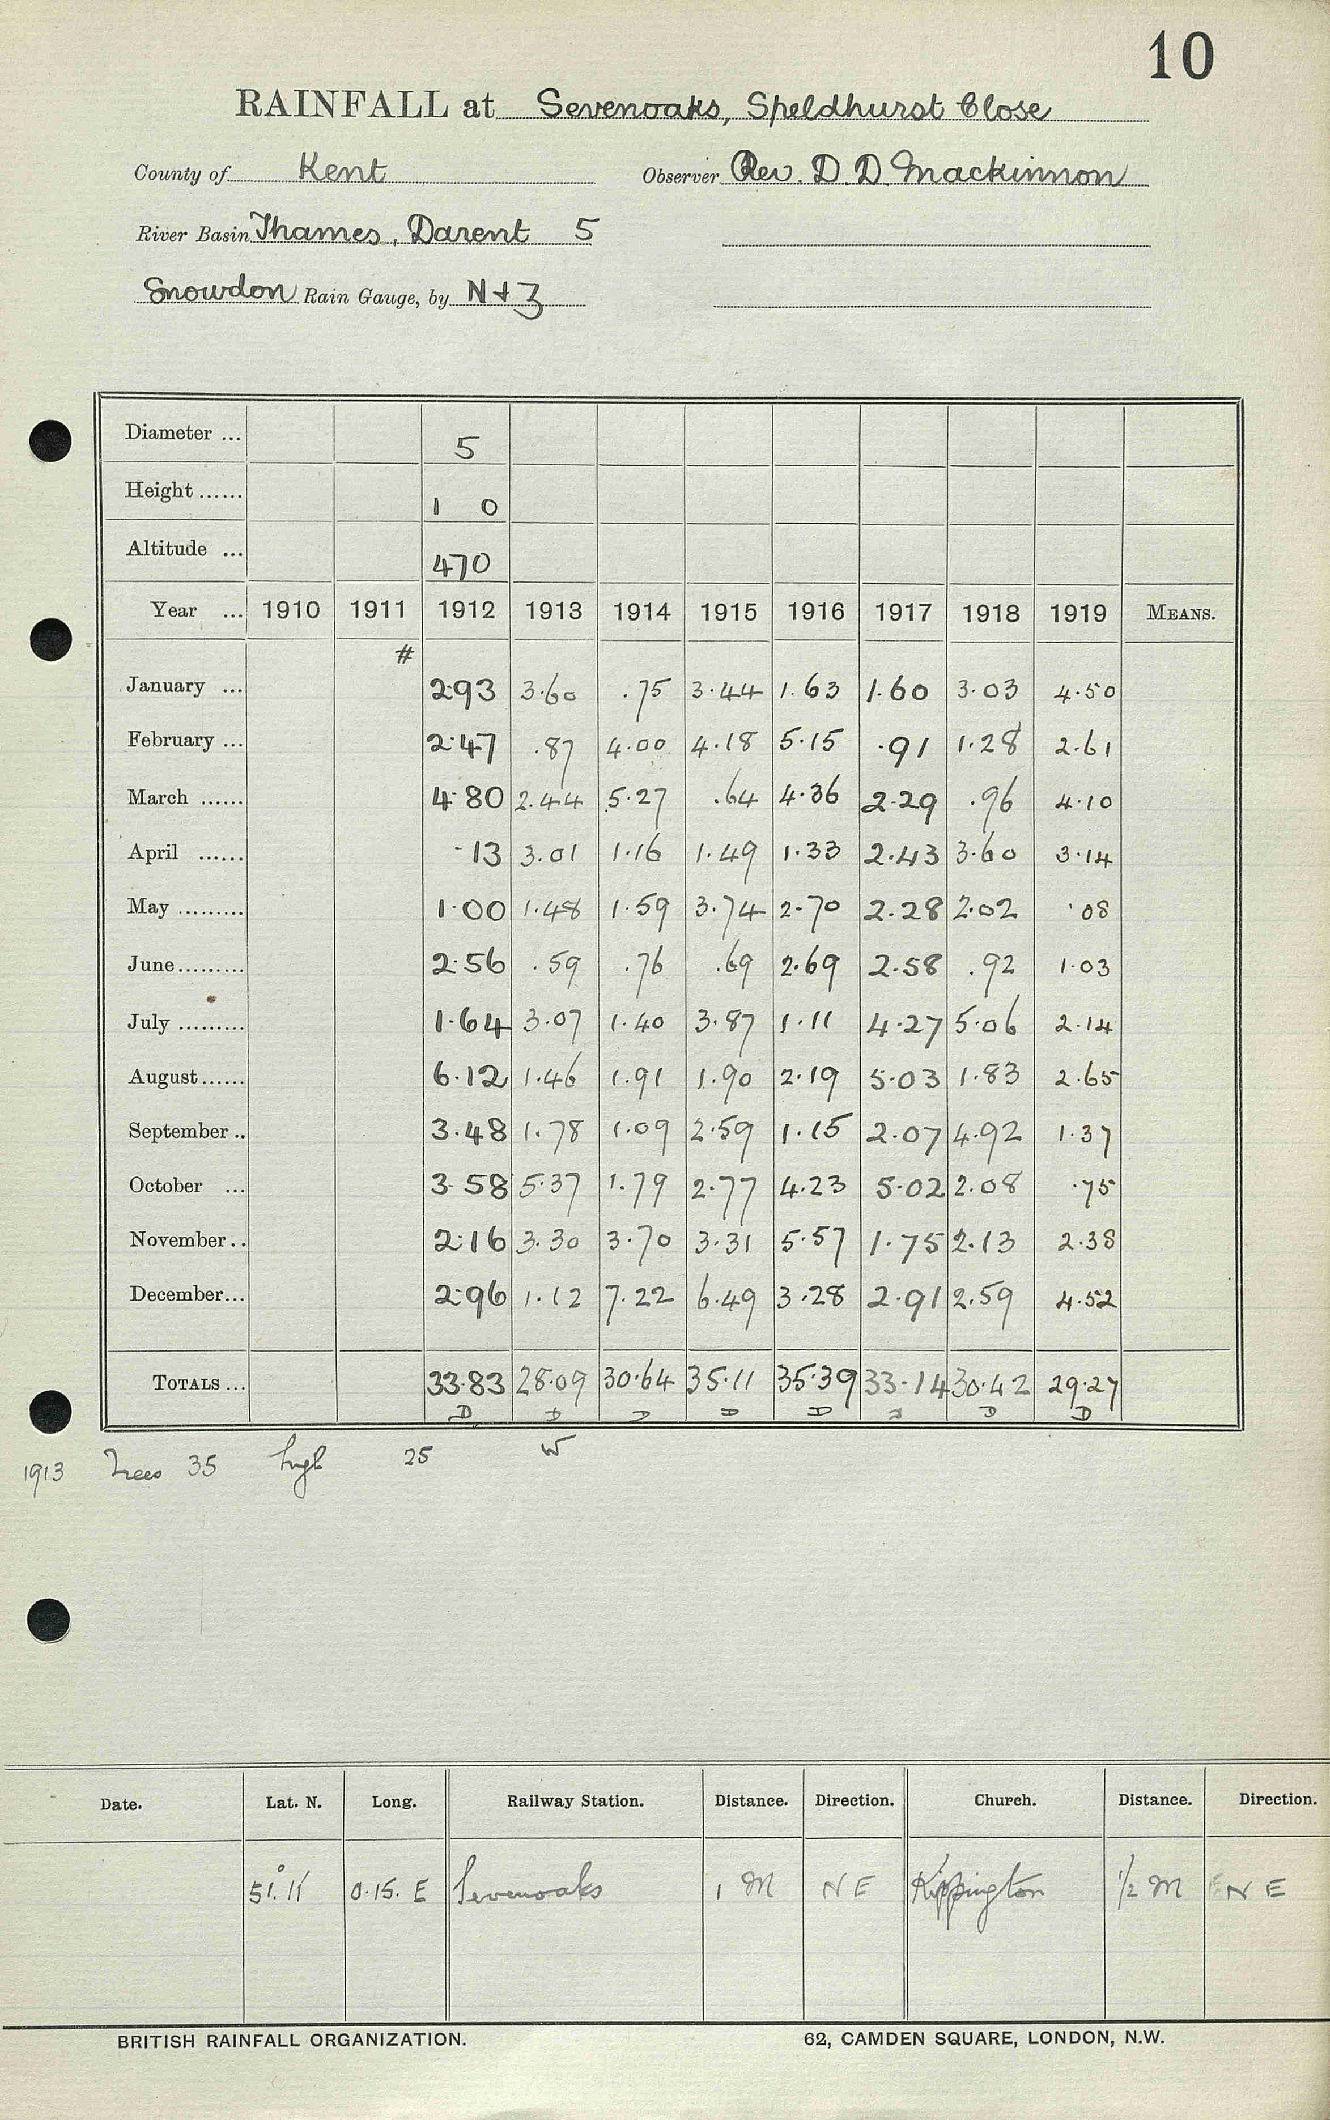 10
RAINFALL at Sevenoaks, Speldhurst Close
County of Kent Observer Rev. D. D. Mackinnon
River Basin Thames, Darent 5
Snowdon Rain Gauge, by N + Z
Diameter ... 5
Height ...... 1 0
Altitude ... 470
Year ... 1910 1911 1912 1913 1914 1915 1916 1917 1918 1919 MEANS.
#
January ... 2.93 3.60 .75 3.44 1.63 1.60 3.03 4.50
February ... 2.47 .87 4.00 4.18 5.15 .91 1.28 2.61
March ...... 4.80 2.44 5.27 .64 4.36 2.29 .96 4.10
April ...... .13 3.01 1.16 1.49 1.33 2.43 3.60 3.14
May ......... 1.00 1.48 1.59 3.74 2.70 2.28 2.02 .08
June......... 2.56 .59 .76 .69 2.69 2.58 .92 1.03
July ......... 1.64 3.07 1.40 3.87 1.11 4.27 5.06 2.14
August...... 6.12 1.46 1.91 1.90 2.19 5.03 1.83 2.65
September .. 3.48 1.78 1.09 2.59 1.15 2.07 4.92 1.37
October ... 3.58 5.37 1.79 2.77 4.23 5.02 2.08 .75
November.. 2.16 3.30 3.70 3.31 5.57 1.75 2.13 2.38
December... 2.96 1.12 7.22 6.49 3.28 2.91 2.59 4.52
TOTALS ... 33.83 28.09 30.64 35.11 35.39 33.14 30.42 29.27
D D D D D D D
1913 Trees 35 high 25 W
Date. Lat. N. Long. Railway Station. Distance. Direction. Church. Distance. Direction.
51°.11 0.15. E Sevenoaks 1 M N E Kippington 1/2 M N E
BRITISH RAINFALL ORGANIZATION. 62, CAMDEN SQUARE, LONDON, N.W.